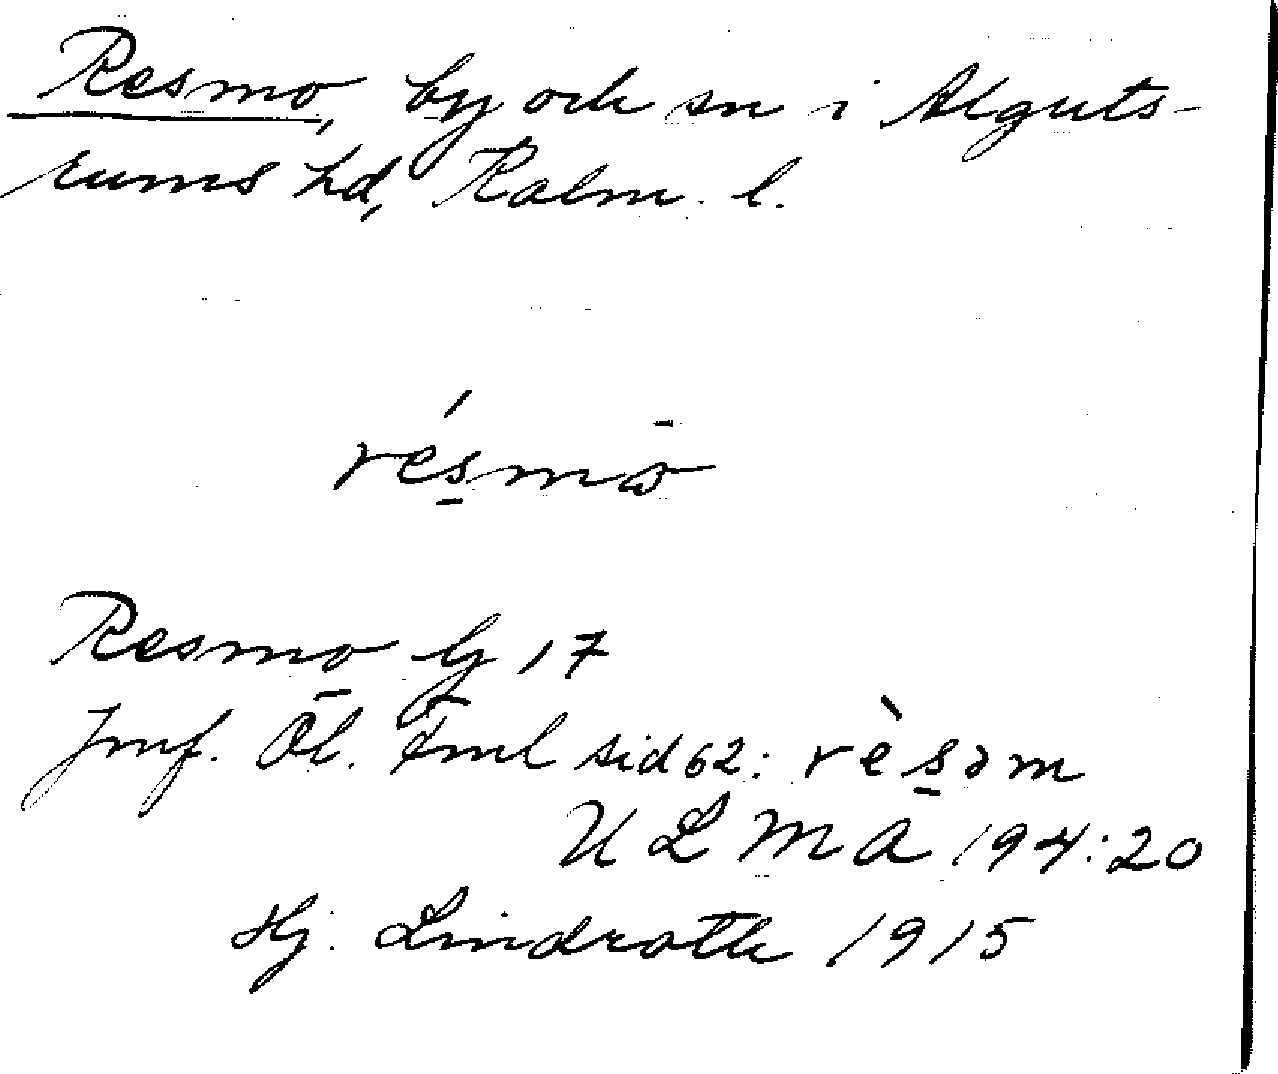 Resmo, by och sn i Alguts-
rums hd, Kalm. l.
résmo
Resmo by 17
Jmf. Öl. Fml sid 62: rèsəm
ULMA 194:20
Hj. Lindroth 1915